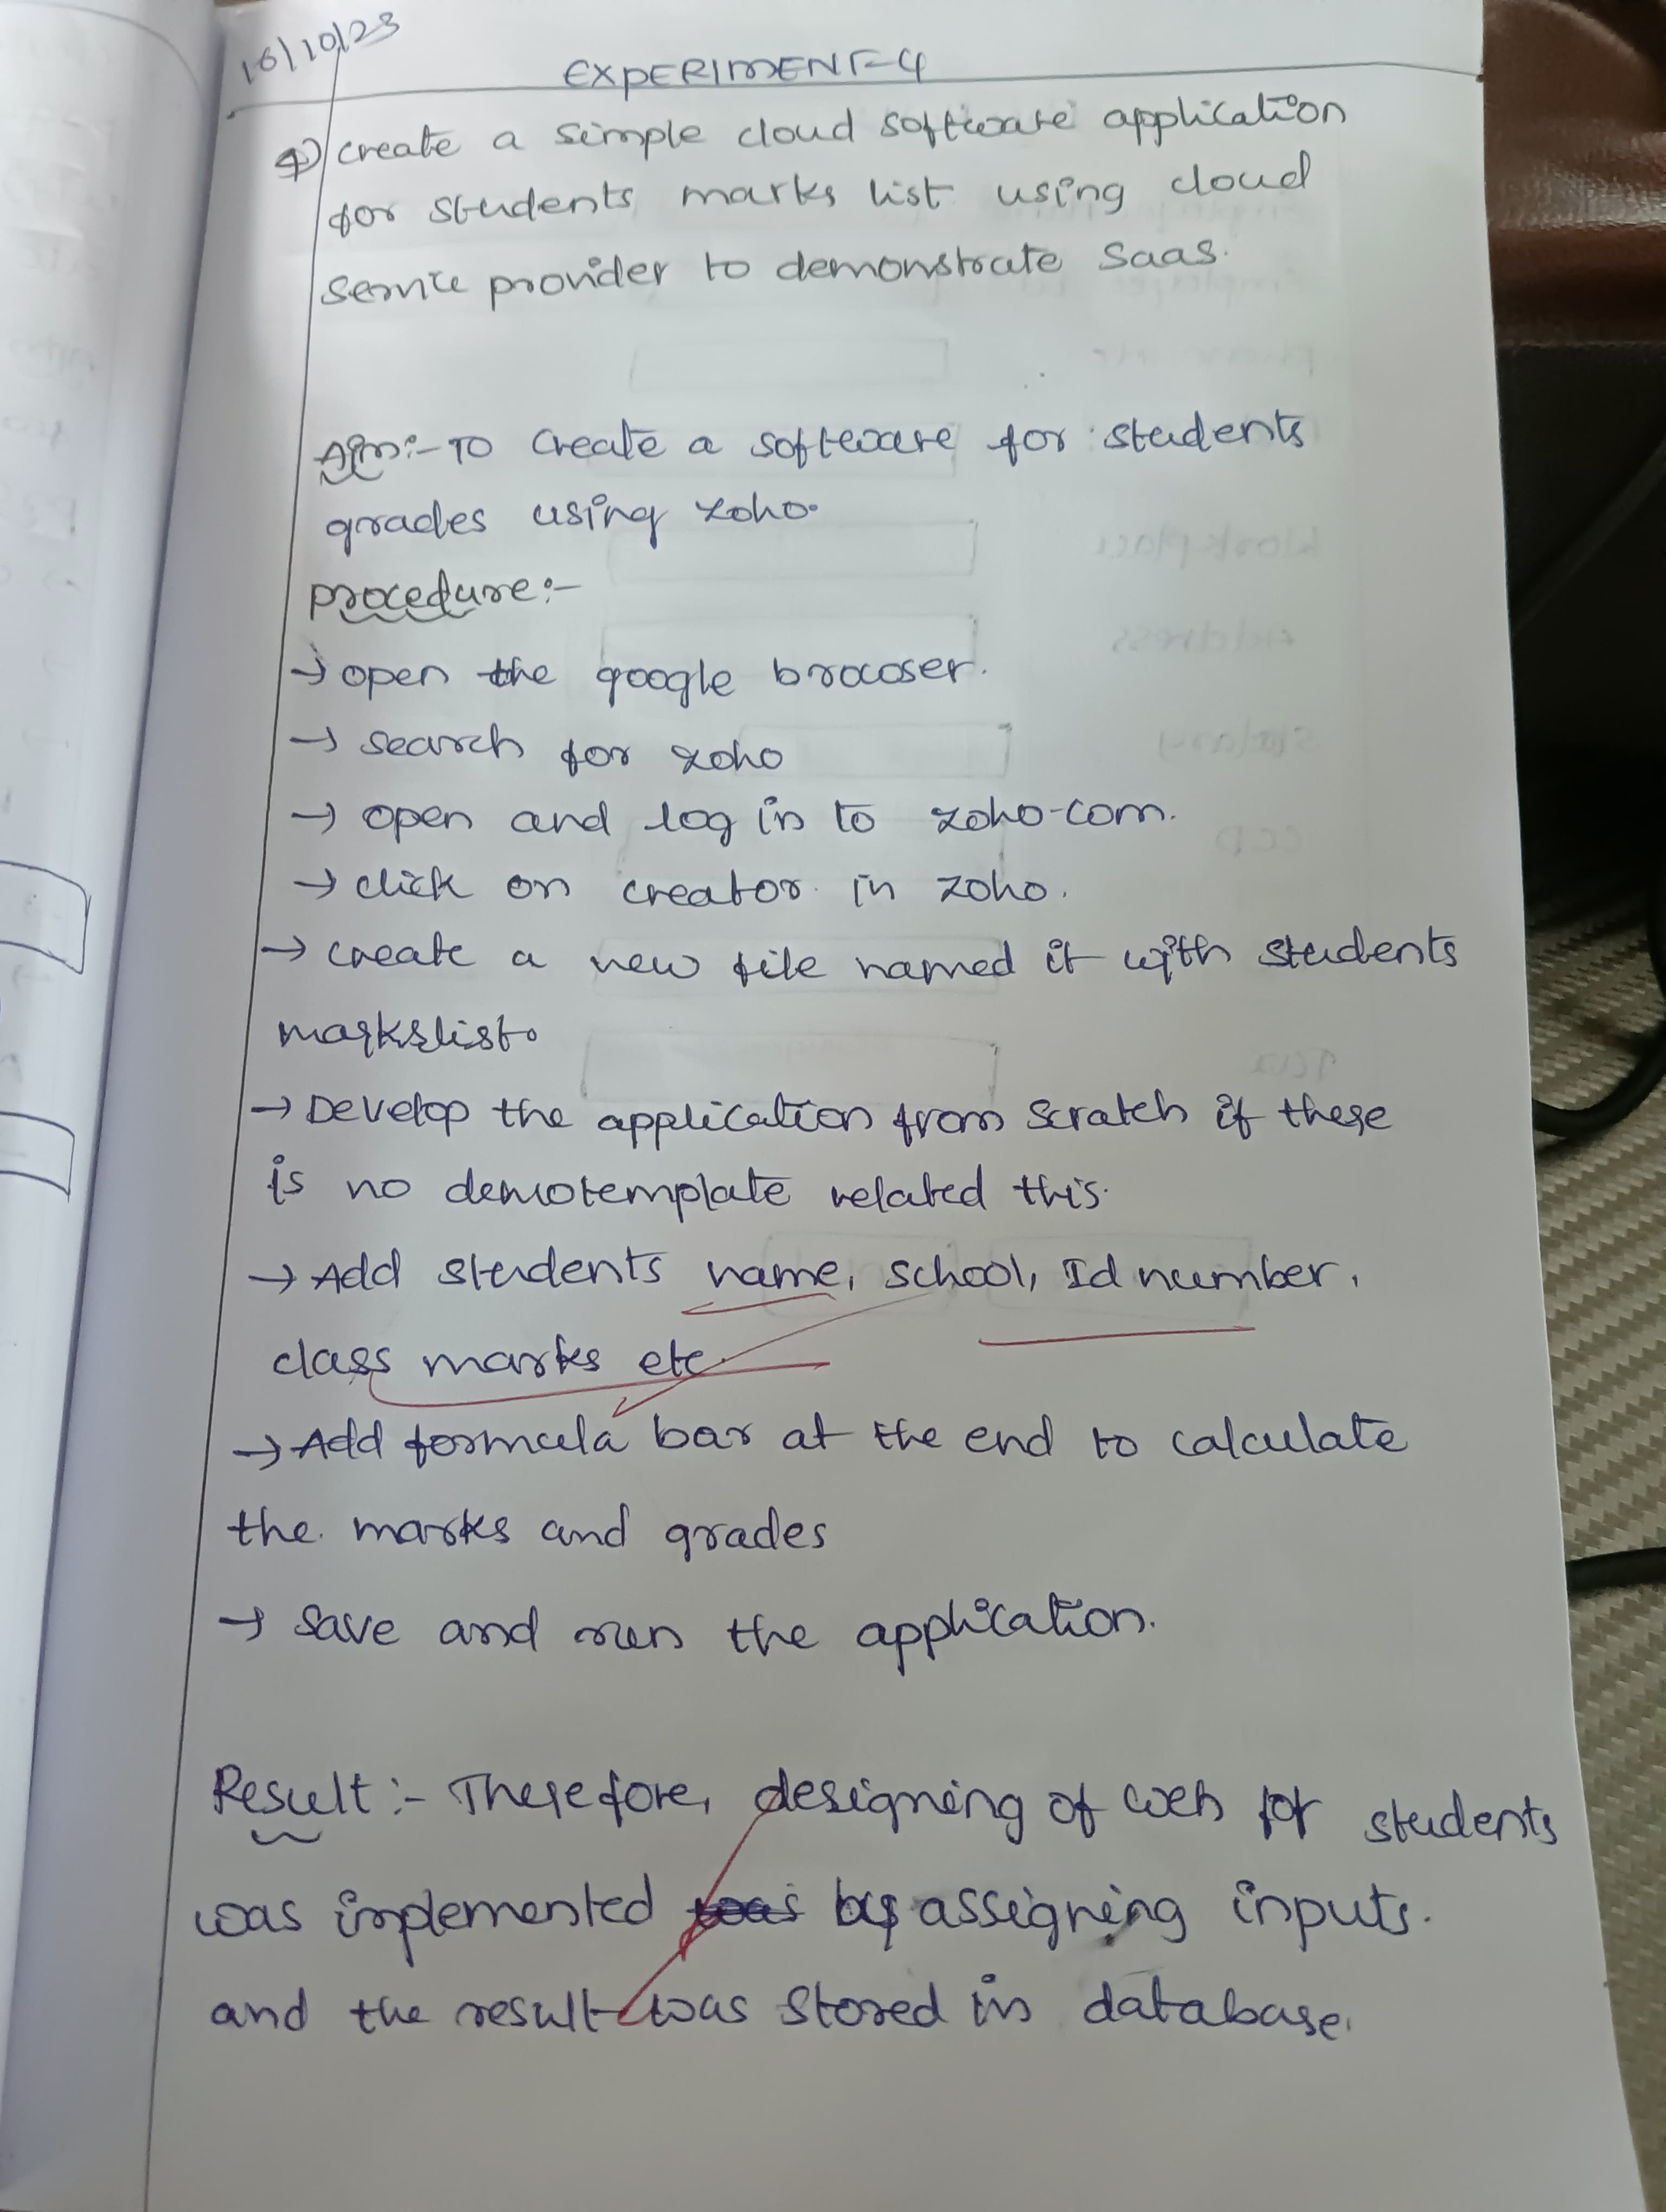 16/10/23
EXPERIMENT-4
4) create a simple cloud software application
for students marks list using cloud
service provider to demonstrate Saas.
Aim:- To create a software for students
grades using zoho.
procedure:-
→ open the google browser.
→ search for zoho
→ open and log in to zoho.com.
→ click on creator in zoho.
→ create a new file named it with students
markslist.
→ Develop the application from scratch if there
is no demotemplate related this.
→ Add students name, school, Id number,
class marks etc.
→ Add formula bar at the end to calculate
the marks and grades
→ save and run the application.
Result:- Therefore, designing of web for students
was implemented was by assigning inputs.
and the result was stored in database.